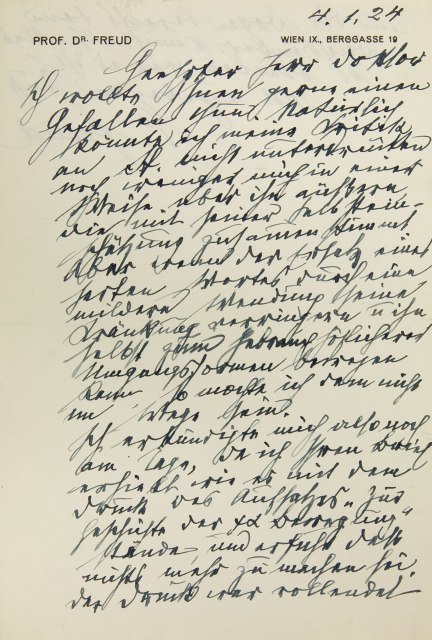 4. 1. 24
PROF. DR. FREUD WIEN IX., BERGGASSE 19
Geehrter Herr Doktor
Ich wollte Ihnen gerne einen
Gefallen thun. Natürlich
könnte ich meine Kritik
an A. nicht unterdrücken
noch weniger mich in einer
Weise über ihn äußern
die mit seiner Selbstein-
schätzung zusammen stimmt
Aber wenn der Ersatz eines
harten Wortes durch eine
mildere Wendung seine
Kränkung verringern u ihn
selbst zum Gebrauch höflicherer
Umgangsformen bewegen
kann so möchte ich dem nicht
im Wege sein.
Ich erkundigte mich also noch
am Tage, da ich Ihren Brief
erhielt wie es mit dem
Druck des Aufsatzes „Zur
Geschichte der ψα Bewegung“
stände, und erfuhr daß
nichts mehr zu machen sei.
Der Druck war vollendet